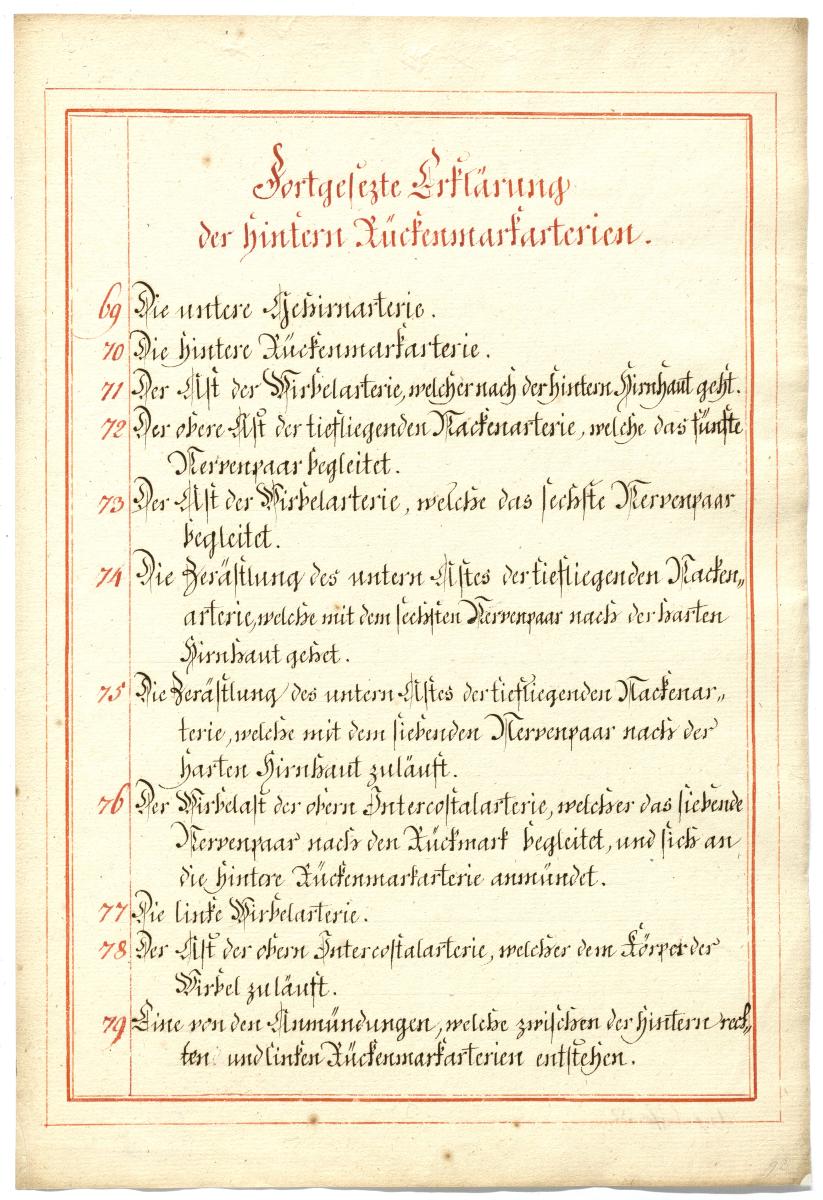 Fortgesezte Erklärung
der hintern Rückenmarkarterien.
69 Die untere Gehirnarterie.
70 Die hintere Rückenmarkarterie.
71 Der Ast der Wirbelarterie, welcher nach der hintern Hirnhaut geht.
72 Der obere Ast der tiefliegenden Nackenarterie, welche das fünfte
Nervenpaar begleitet.
73 Der Ast der Wirbelarterie, welche das sechste Nervenpaar
begleitet.
74 Die Zerästlung des untern Astes der tiefliegenden Nacken„
arterie, welche mit dem sechsten Nervenpaar nach der harten
Hirnhaut gehet.
75 Die Zerästlung des untern Astes der tiefliegenden Nackenar„
terie, welche mit dem siebenden Nervenpaar nach der
harten Hirnhaut zuläuft.
76 Der Wirbelast der obern Intercostalarterie, welcher das siebende
Nervenpaar nach den Rückmark begleitet, und sich an
die hintere Rückenmarkarterie anmündet.
77 Die linke Wirbelarterie.
78 Der Ast der obern Intercostalarterie, welcher dem Körper der
Wirbel zuläuft.
79 Eine von den Anmündungen, welche zwischen der hintern rech„
ten und linken Rückenmarkarterien entstehen.